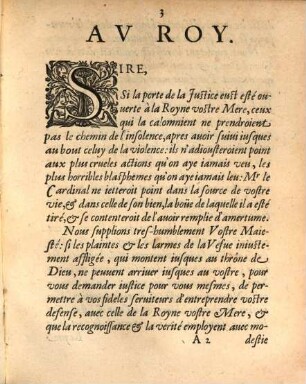 3
AV ROY.
SIRE,
Si la porte de la Justice eust esté ou-
uerte à la Royne vostre Mere, ceux
qui la calomnient ne prendroient
pas le chemin de l'insolence, apres auoir suiui iusques
au bout celuy de la violence: ils n'adiousteroient point
aux plus crueles actions qu'on aye iamais veu, les
plus horribles blasphemes qu'on aye iamais leu: Mr le
Cardinal ne ietteroit point dans la source de vostre
vie, & dans celle de son bien, la boüe de laquelle il a esté
tiré, & se contenteroit de l'auoir remplie d'amertume.
Nous supplions tres-humblement Vostre Maie-
sté: si les plaintes & les larmes de la Vefue iniuste-
ment affligée, qui montent iusques au thrône de
Dieu, ne peuuent arriuer iusques au vostre, pour
vous demander iustice pour vous mesmes, de per-
mettre à vos fideles seruiteurs d'entreprendre vostre
defense, auec celle de la Royne vostre Mere, &
que la recognoissance & la verité employent auec mo-
A 2 destie